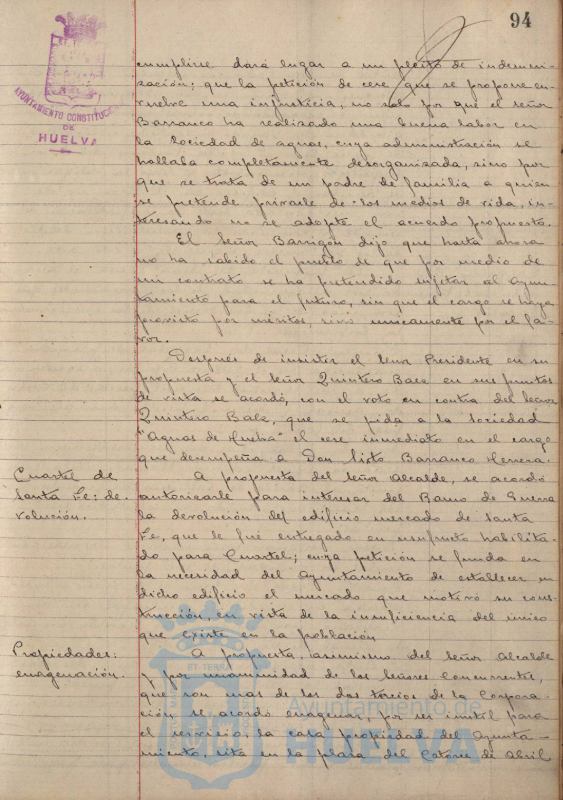 94
AYUNTAMIENTO CONSTITUCIONAL
DE
HUELVA
cumplirse dará lugar a un pleito de indemni-
zación; que la petición de cese que se propone en-
vuelve una injusticia, no solo por que el señor
Barranco ha realizado una buena labor en
la Sociedad de aguas, cuya administración se
hallaba completamente desorganizada, sino por
que se trata de un padre de familia a quien
se pretende privarle de los medios de vida, in-
teresando no se adopte el acuerdo propuesto.
El Señor Barrigón dijo que hasta ahora
no ha sabido el pueblo de que por medio de
un contrato se ha pretendido sujetar al Ayun-
tamiento para el futuro, sin que el cargo se haya
provisto por méritos, sino unicamente por el fa-
vor.
Después de insistir el Señor Presidente en su
propuesta y el Señor Quintero Baez en sus puntos
de vista se acordó, con el voto en contra del Señor
Quintero Baez, que se pida a la Sociedad
"Aguas de Huelva" el cese inmediato en el cargo
que desempeña a Don Sixto Barranco Herrera.
Cuartel de
Santa Fe: de-
volución.
A propuesta del Señor Alcalde, se acordó
autorizarle para interesar del Ramo de Guerra
la devolución del edificio mercado de Santa
Fe, que le fué entregado en usufructo habilita-
do para Cuartel; cuya petición se funda en
la necesidad del Ayuntamiento de establecer en
dicho edificio el mercado que motivó su cons-
trucción, en vista de la insuficiencia del único
que existe en la población
Propiedades:
enagenación.
A propuesta, asimismo del Señor Alcalde
y por unanimidad de los Señores Concurrentes,
que son mas de los dos tercios de la Corpora-
ción se acordó enagenar, por ser inutil para
el servicio, la casa propiedad del Ayunta-
miento, sita en la plaza del Catorce de Abril
Ayuntamiento de
HUELVA